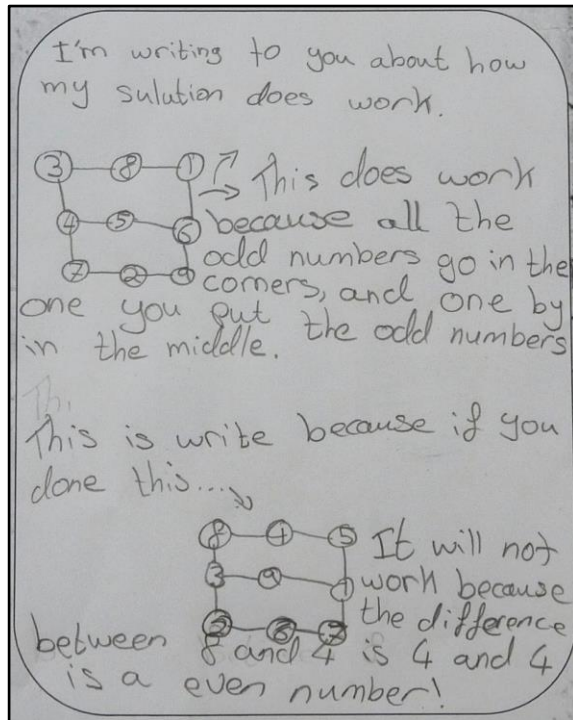 I'm writing to you about how
my sulution does work.
3 8 1
This does work
4 5 6
because all the
odd numbers go in the
7 2 9
corners, and one by
one you put the odd numbers
in the middle.
Thi
This is write because if you
done this...
8 4 5
It will not
3 9 1
work because
the difference
6 7
between 8 and 4 is 4 and 4
is a even number!